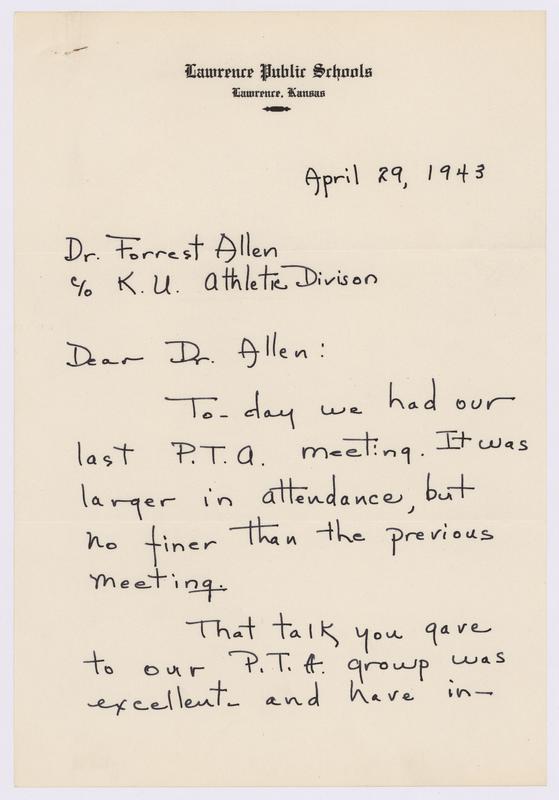 Lawrence Public Schools
Lawrence, Kansas
April 29, 1943
Dr. Forrest Allen
c/o K. U. Athletic Divison
Dear Dr. Allen:
To-day we had our
last P.T.A. meeting. It was
larger in attendance, but
no finer than the previous
meeting.
That talk you gave
to our P.T.A. group was
excellent and have in-